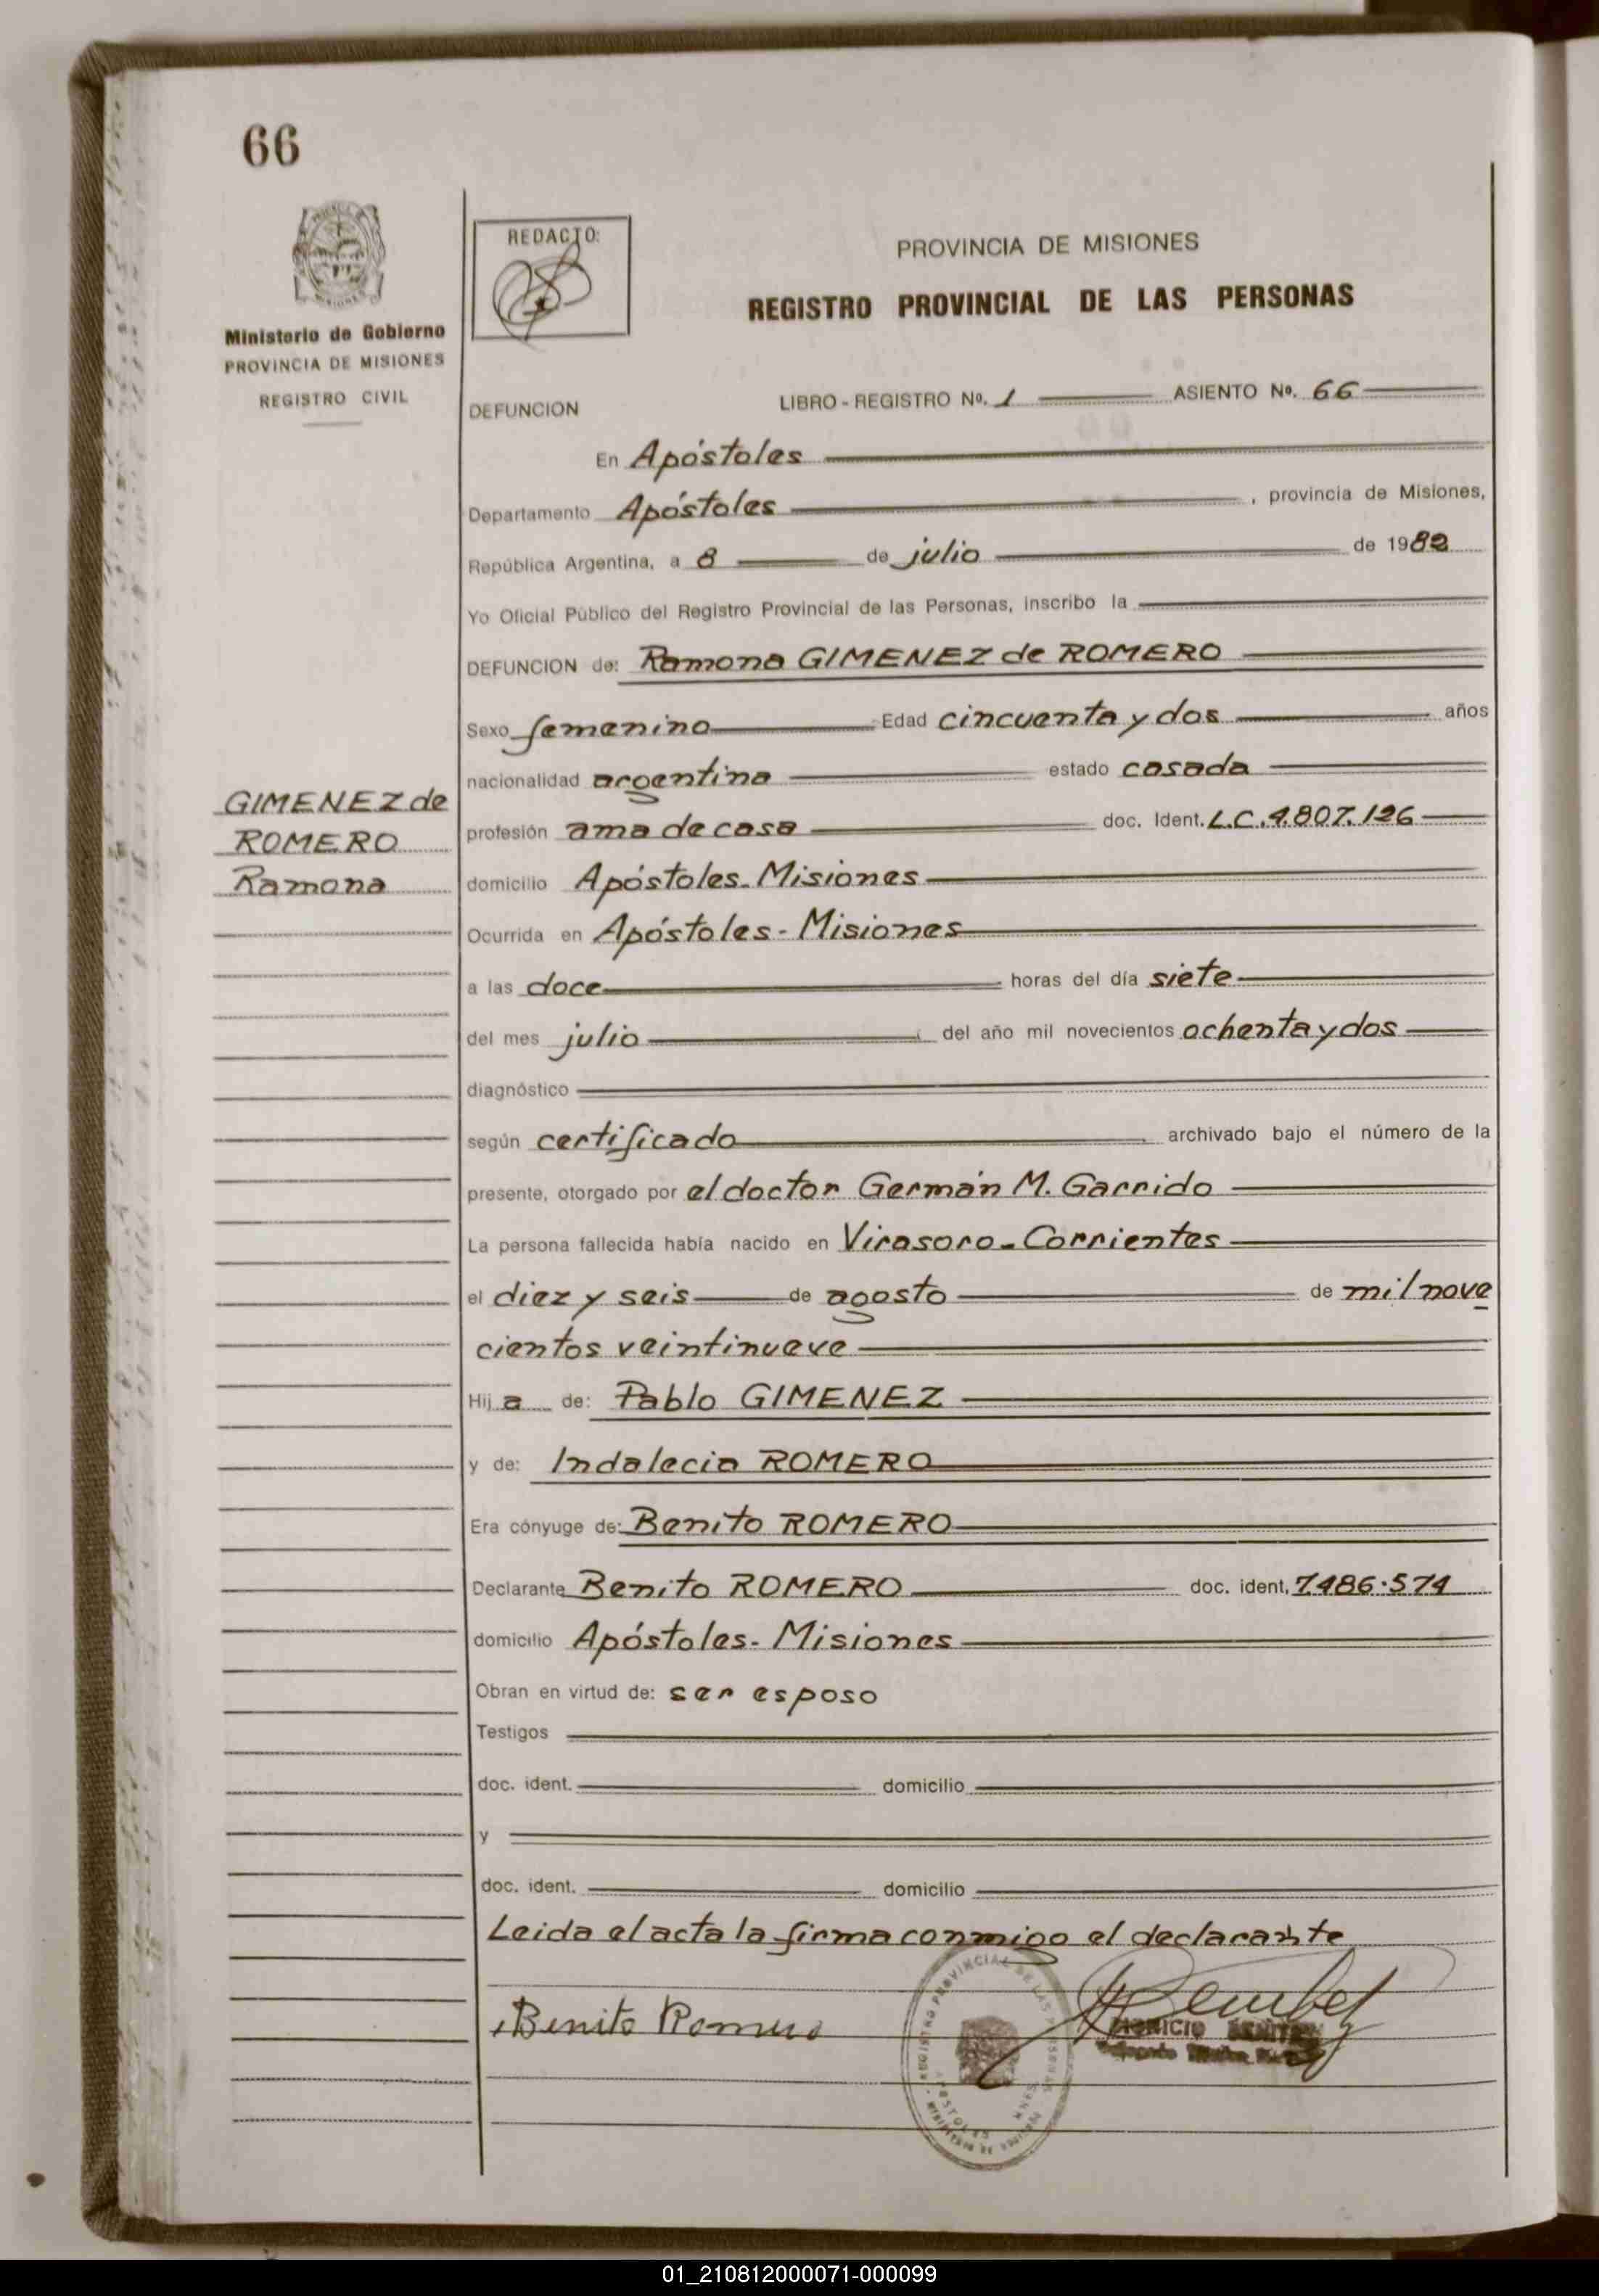 66
Ministerio de Gobierno
PROVINCIA DE MISIONES
REGISTRO CIVIL
REDACTO:
PROVINCIA DE MISIONES
REGISTRO PROVINCIAL DE LAS PERSONAS
DEFUNCION LIBRO - REGISTRO Nº. 1 ASIENTO Nº. 66
En Apóstoles
Departamento Apóstoles, provincia de Misiones,
República Argentina, a 8 de julio de 1982
Yo Oficial Público del Registro Provincial de las Personas, inscribo la
DEFUNCION de: Ramona GIMENEZ de ROMERO
Sexo femenino Edad cincuenta y dos años
nacionalidad argentina estado casada
GIMENEZ de
ROMERO
Ramona
profesión ama de casa doc. Ident. L.C.4.807.126
domicilio Apóstoles - Misiones
Ocurrida en Apóstoles - Misiones
a las doce horas del día siete
del mes julio del año mil novecientos ochenta y dos
diagnóstico
según certificado archivado bajo el número de la
presente, otorgado por el doctor Germán M. Garrido
La persona fallecida había nacido en Virasoro - Corrientes
el diez y seis de agosto de mil nove
cientos veintinueve
Hija de: Pablo GIMENEZ
y de: Indalecia ROMERO
Era cónyuge de: Benito ROMERO
Declarante Benito ROMERO doc. ident. 7486.574
domicilio Apóstoles - Misiones
Obran en virtud de: ser esposo
Testigos
doc. ident. domicilio
y
doc. ident. domicilio
Leida el acta la firma conmigo el declarante
Benito Romero
REGISTRO PROVINCIAL DE LAS PERSONAS
01_210812000071-000099